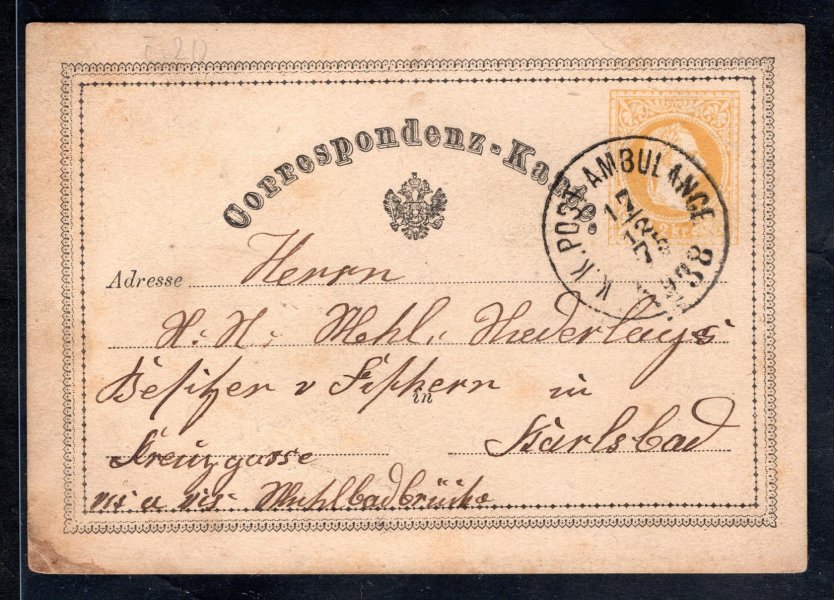 Correspondenz-Karte.
2 kr.
K.K. POST AMBULANCE
38
Adresse Herrn
H: H: Mehl, Niederlags
Besitzer v Fischern in
in
Kreuzgasse Karlsbad
vis a vis Muhlbadbrücke